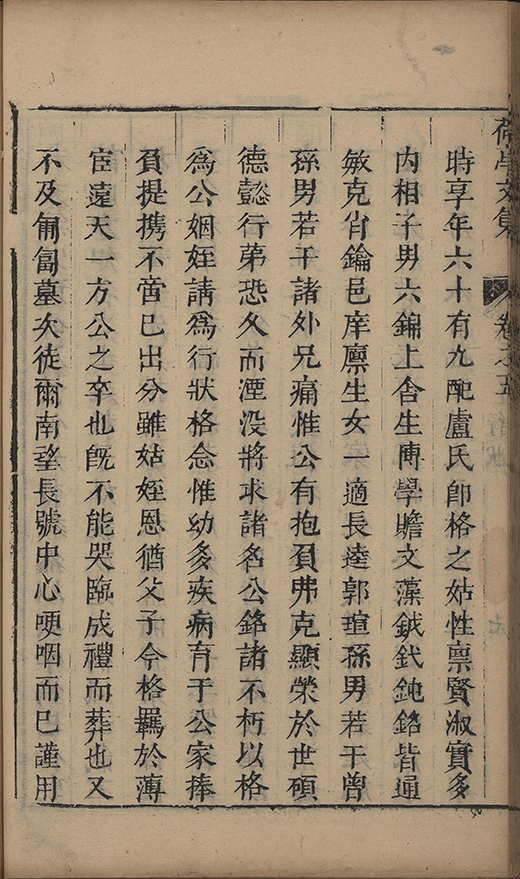 荷亭文集 卷之五
時享年六十有九配盧氏卽格之姑性禀賢淑實多
内相子男六錦上舍生博學贍文藻鉞鈥鈍鉻皆通
敏克肖鑰邑庠廪生女一適長逵郭瑄孫男若干曾
孫男若干諸外兄痛惟公有抱負弗克顯榮於世碩
德懿行第恐久而湮没將求諸名公銘諸不朽以格
爲公姻姪請爲行狀格念惟幼多疾病育于公家捧
負提携不啻已出分雖姑姪恩猶父子今格羈於薄
宦遠天一方公之卒也旣不能哭臨成禮而葬也又
不及匍匐墓次徒爾南望長號中心哽咽而已謹用